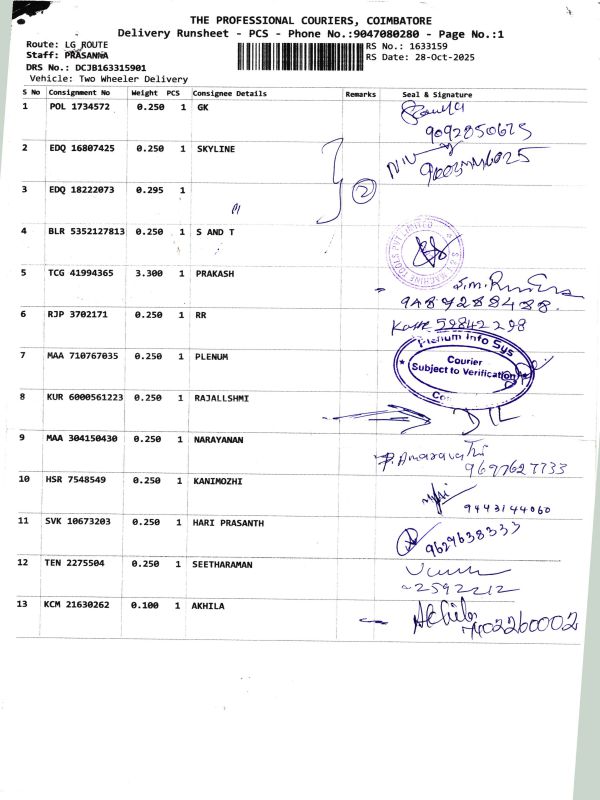 THE PROFESSIONAL COURIERS, COIMBATORE
Delivery Runsheet - PCS - Phone No.:9047080280 - Page No.:1
Route: LG_ROUTE
RS No.: 1633159
Staff: PRASANNA
RS Date: 28-Oct-2025
DRS No.: DCJB163315901
Vehicle: Two Wheeler Delivery
S No Consignment No Weight PCS Consignee Details Remarks Seal & Signature
1 POL 1734572 0.250 1 GK
9092850675
2 EDQ 16807425 0.250 1 SKYLINE
3 EDQ 18222073 0.295 1
2
4 BLR 5352127813 0.250 1 S AND T
5 TCG 41994365 3.300 1 PRAKASH
9489288488.
6 RJP 3702171 0.250 1 RR
59842298
7 MAA 710767035 0.250 1 PLENUM
Plenum Info Sys
Courier
Subject to Verification
8 KUR 6000561223 0.250 1 RAJALLSHMI
9 MAA 304150430 0.250 1 NARAYANAN
P. Amaravathi
9697627733
10 HSR 7548549 0.250 1 KANIMOZHI
9443144060
11 SVK 10673203 0.250 1 HARI PRASANTH
9629638333
12 TEN 2275504 0.250 1 SEETHARAMAN
2592212
13 KCM 21630262 0.100 1 AKHILA
Akhila